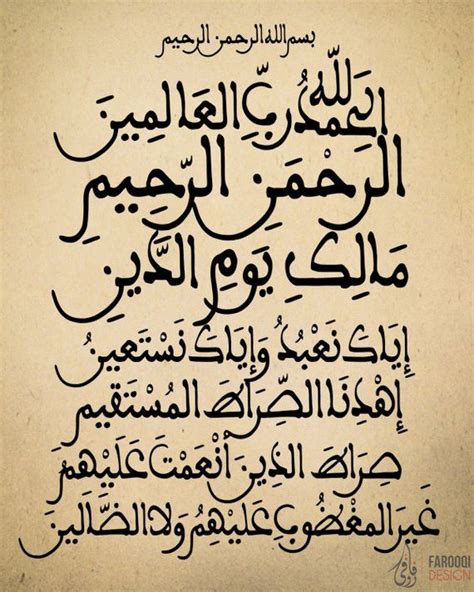 بسم الله الرحمن الرحيم
الحمد لله رَبِّ العَالَمِينَ
الرَحْمَنِ الرَّحِيمِ
مَالِكِ يَوْمِ الدِّينِ
إِيَاكَ نَعْبُدُ وَإِيَاكَ نَسْتَعِينُ
إِهْدِنَا الصِّرَاطَ المُسْتَقِيمَ
صِرَاطَ الذِينَ أَنْعَمْتَ عَلَيْهِمْ
غَيرِ المغْضُوبِ عَلَيْهِمْ وَلا الضَّالِينَ
فاروقي
FAROOQI
DESIGN